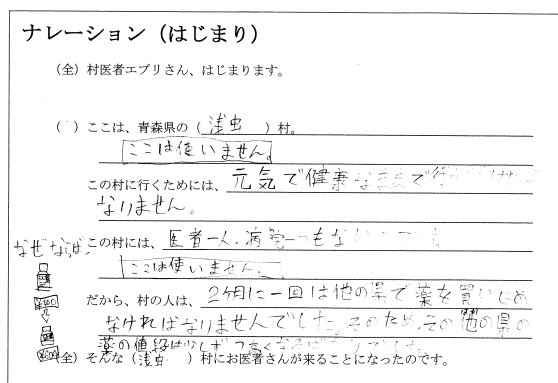 ナレーション（はじまり）
（全）村医者エブリさん、はじまります。
（ ）ここは、青森県の（ 浅虫 ）村。
ここは使いません。
この村に行くためには、元気で健康なままで
なりません。
なぜならば、この村には、医者一人、病院一つもない
ここは使いません。
だから、村の人は、2ヶ月に一回は他の県で薬を買いだめ
なければなりませんでした。そのため、その他の県の
薬の値段は少しずつ高く
（全）そんな（浅虫）村にお医者さんが来ることになったのです。